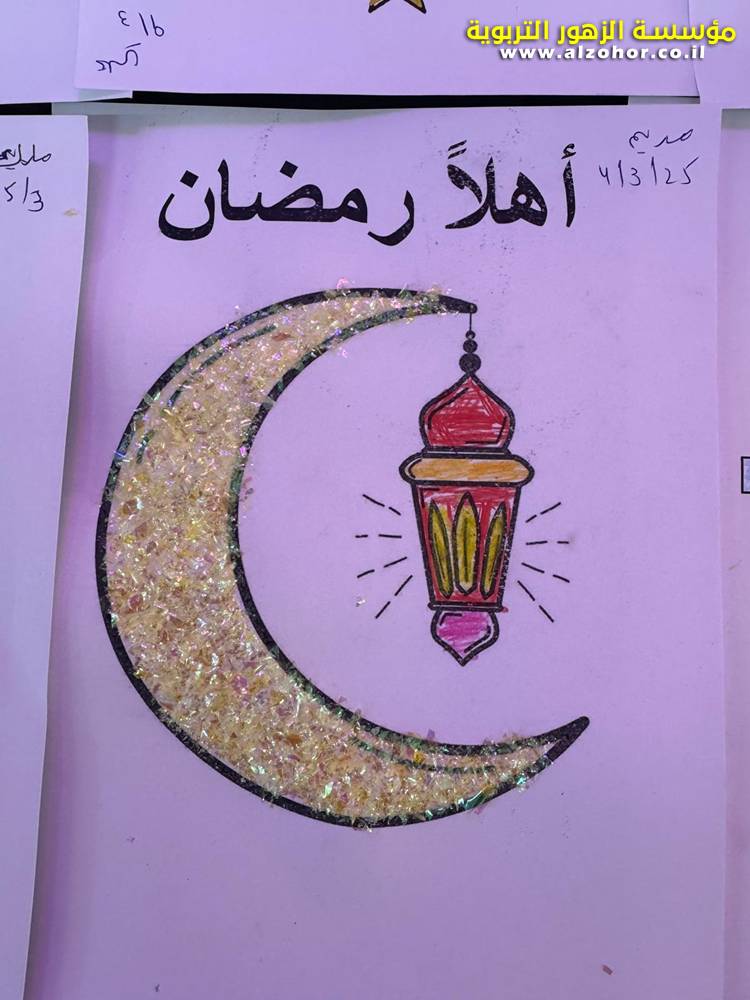 مؤسسة الزهور التربوية
www.alzohor.co.il
9/3
مريم
4/3/25
أهلاً رمضان
5/3